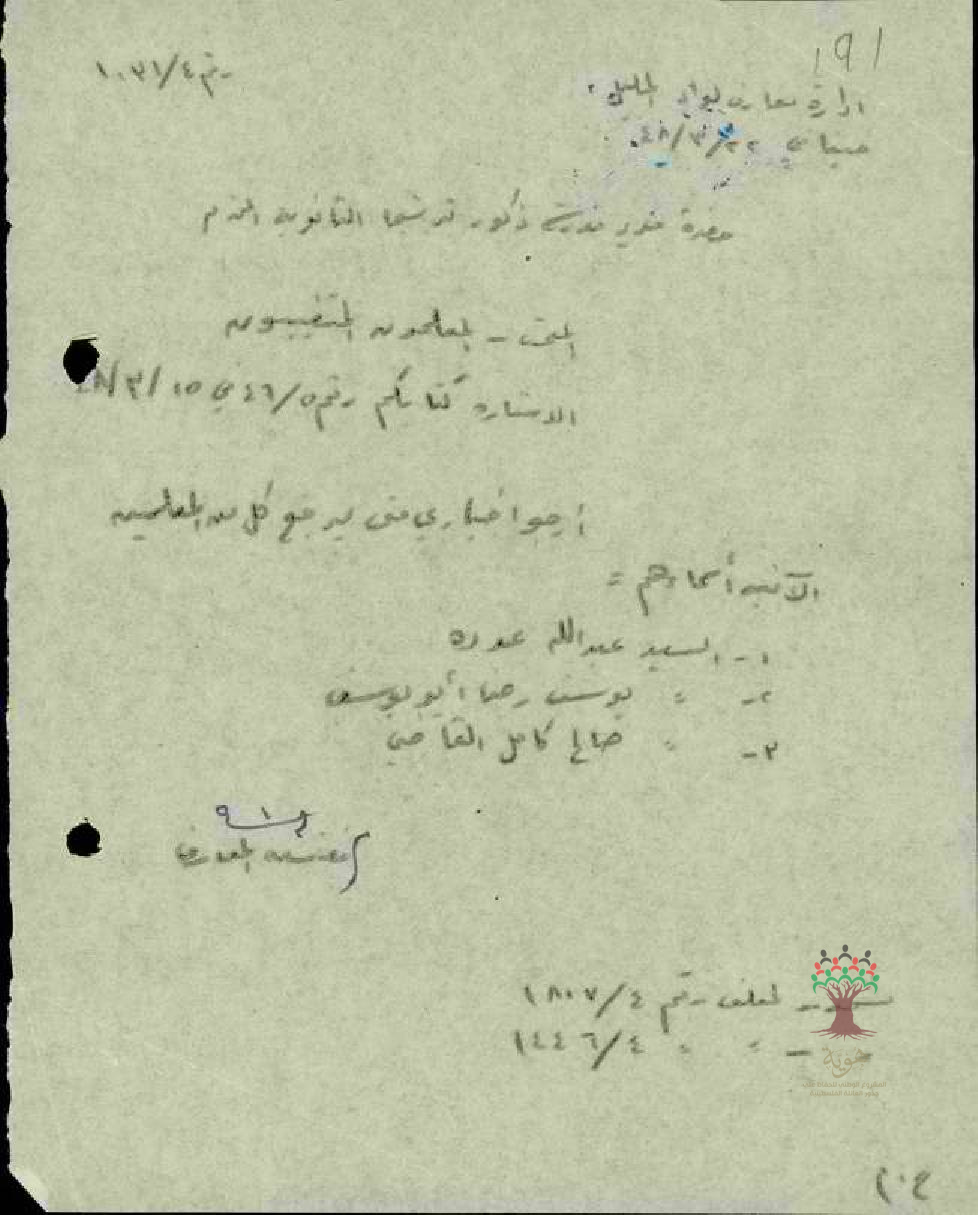 ١٩١
رقم ١٠٣١/٤
ادارة معارف لواء الجليل.
في ٢٢/٣/٤٨.
حضرة مدير مدرسة ذكور ترشيحا الثانوية المحترم
المبحث - المعلمون المتغيبون
الاشارة كتابكم رقم ٤٦/٥ في ١٥/٣/
أرجو اخباري متى يرجع كل من المعلمين
الآتية أسماءهم :
١- السيد عبدالله عوده
٢- " يوسف رضا أبو يوسف
٣- " صالح كامل القاضي
مفتش المعارف
لملف رقم ١٨٠٧/٤
" " ١٤٤٦/٤
هوية
١٠٤